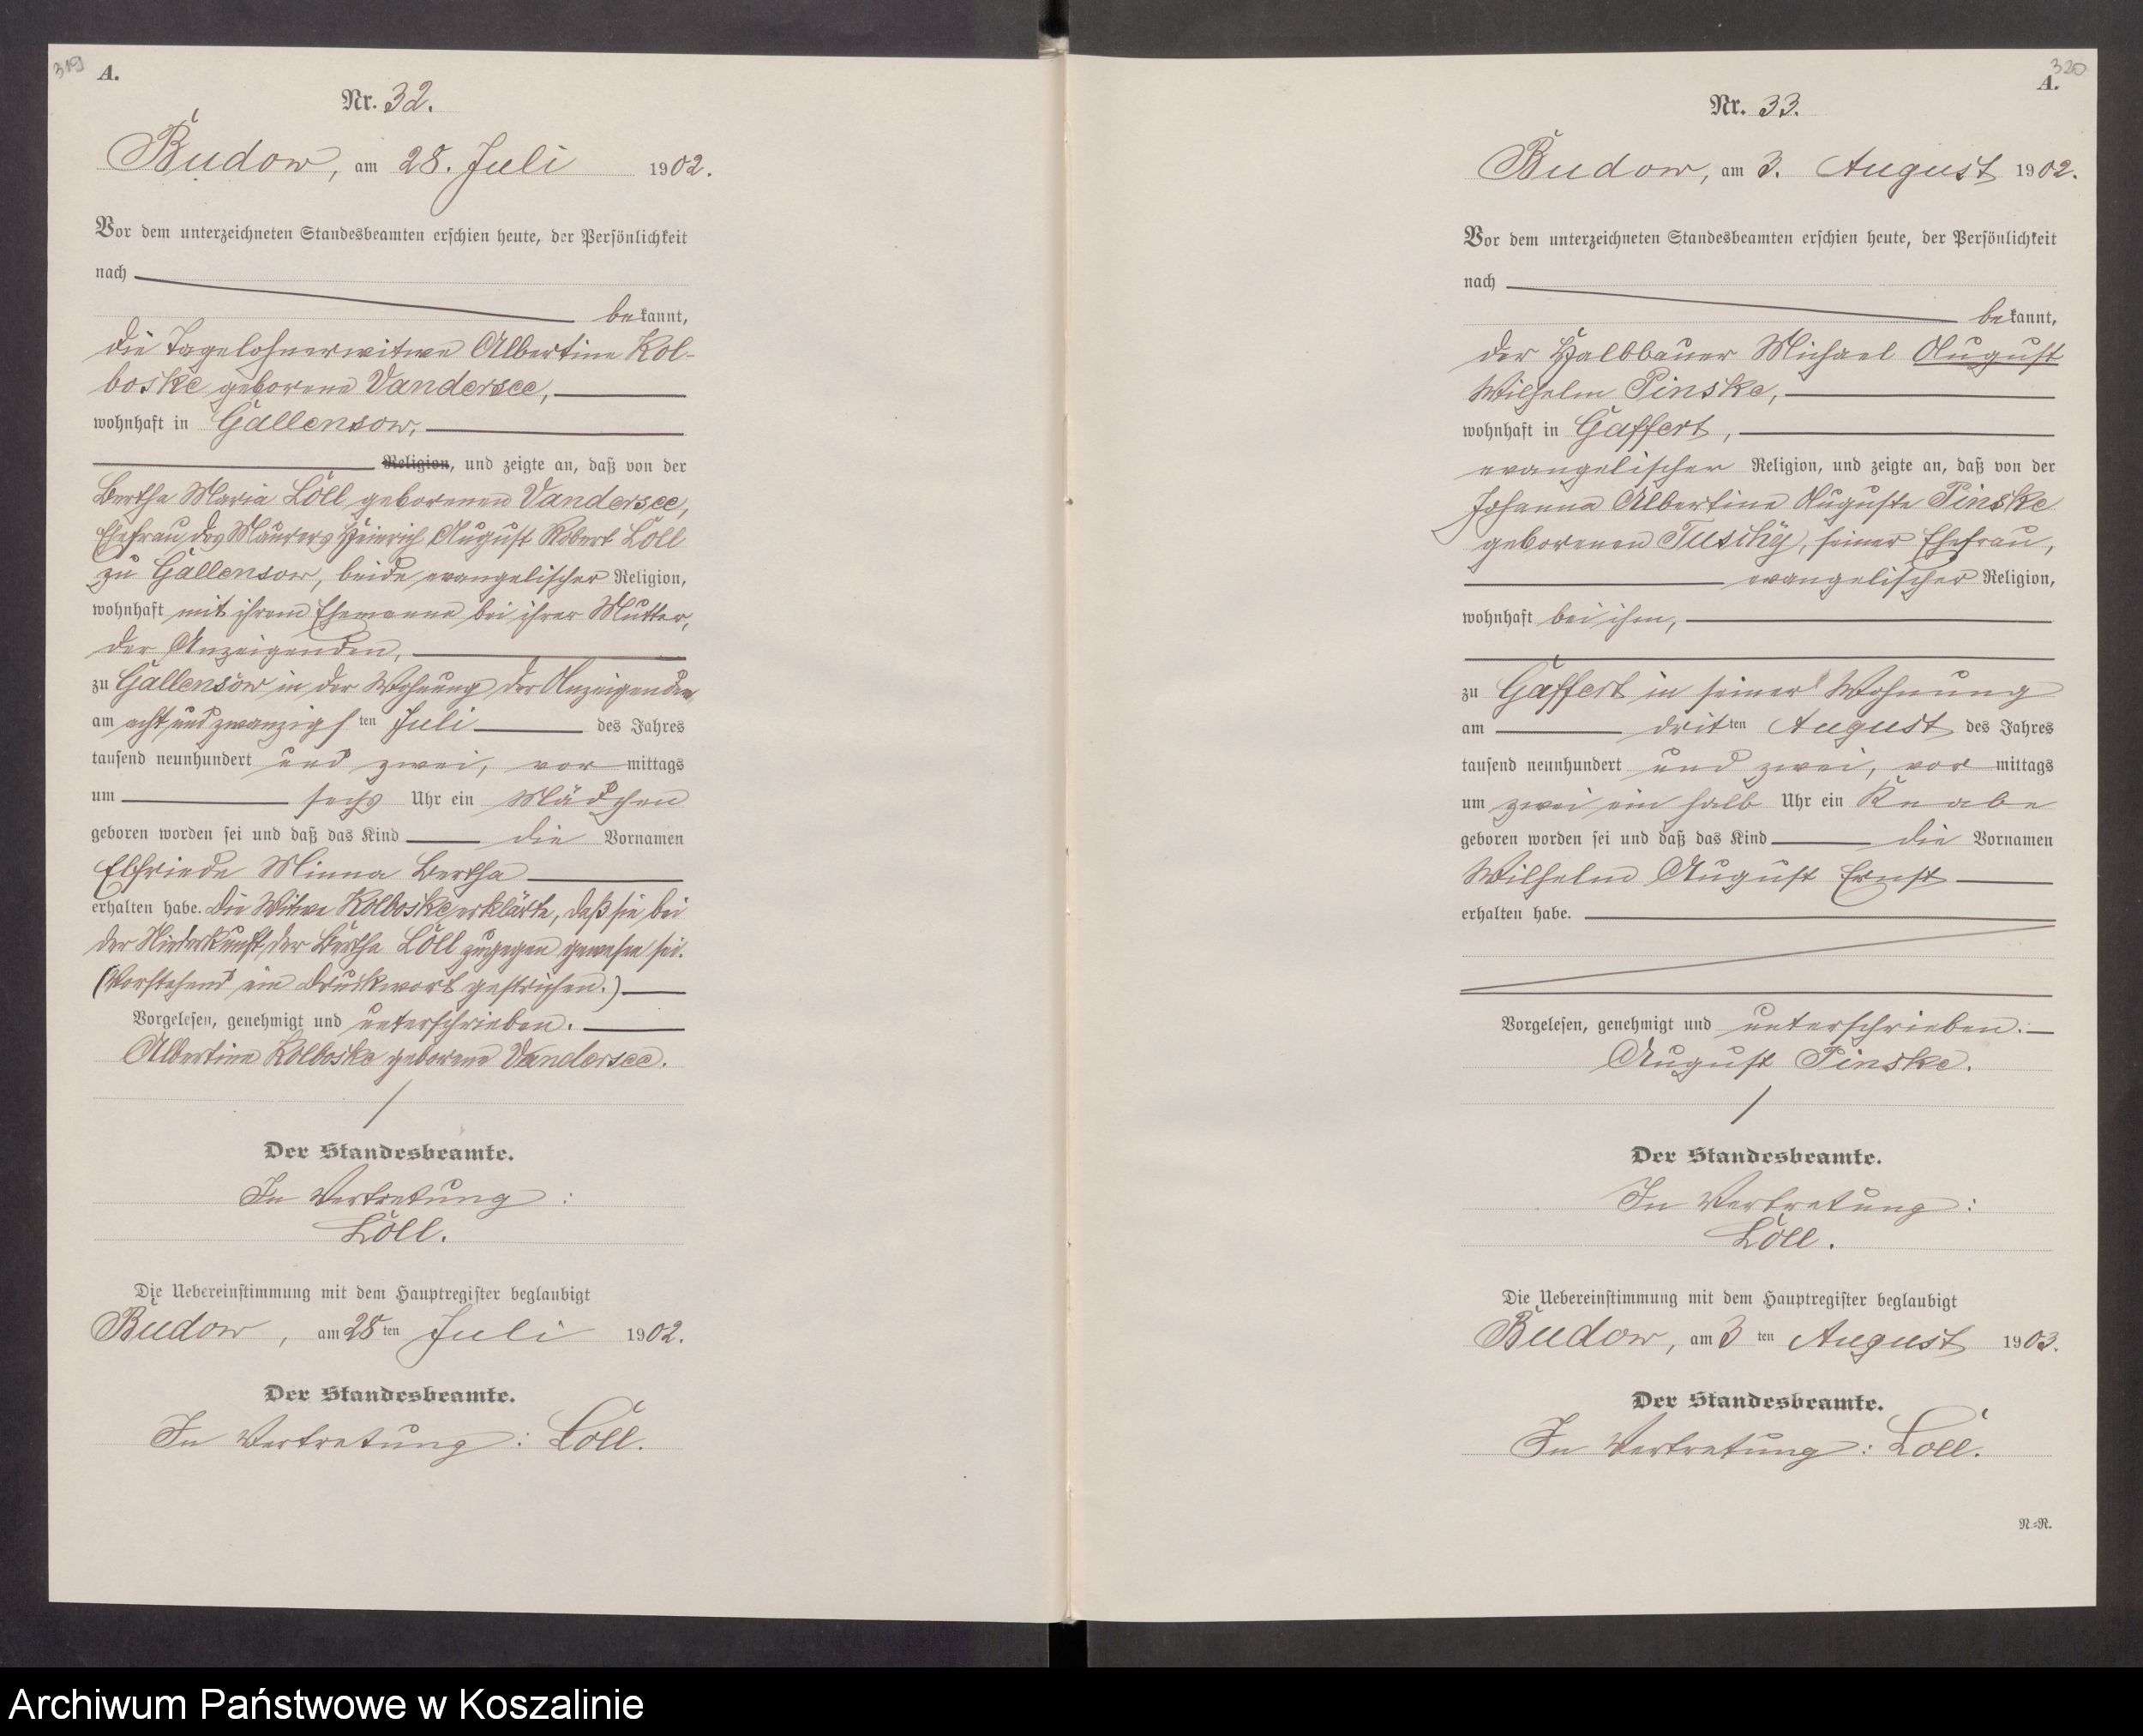 319
A.
Nr. 32.
Budow, am 28. Juli 1902.
Vor dem unterzeichneten Standesbeamten erschien heute, der Persönlichkeit
nach
bekannt,
die Tagelohnerwitwe Albertine Kol-
boske geborene Vandersee,
wohnhaft in Gallensow,
Religion, und zeigte an, daß von der
Bertha Maria Löll geborenen Vandersee,
Ehefrau des Maurers Heinrich August Robert Löll
zu Gallensow, beide evangelischer Religion,
wohnhaft mit ihrem Ehemanne bei ihrer Mutter,
der Anzeigenden,
zu Gallensow in der Wohnung der Anzeigenden
am acht und zwanzigsten Juli des Jahres
tausend neunhundert und zwei, vormittags
um sechs Uhr ein Mädchen
geboren worden sei und daß das Kind die Vornamen
Elfriede Minna Bertha
erhalten habe. Die Witwe Kolboske erklärte, daß sie bei
der Niederkunft der Bertha Löll zugegen gewesen sei.
(Vorstehend ein Druckwort gestrichen.)
Vorgelesen, genehmigt und unterschrieben.
Albertine Kolboske geborene Vandersee.
Der Standesbeamte.
In Vertretung:
Löll.
Die Uebereinstimmung mit dem Hauptregister beglaubigt
Budow, am 28ten Juli 1902.
Der Standesbeamte.
In Vertretung: Löll.
320
A.
Nr. 33.
Budow, am 3. August 1902.
Vor dem unterzeichneten Standesbeamten erschien heute, der Persönlichkeit
nach
bekannt,
der Halbbauer Michael August
Wilhelm Pinske,
wohnhaft in Gaffert,
evangelischer Religion, und zeigte an, daß von der
Johanna Albertine Auguste Pinske
geborenen, seiner Ehefrau,
evangelischer Religion,
wohnhaft bei ihm,
zu Gaffert in seiner Wohnung
am dritten August des Jahres
tausend neunhundert und zwei, vormittags
um zwei ein halb Uhr ein Knabe
geboren worden sei und daß das Kind die Vornamen
Wilhelm August Ernst
erhalten habe.
Vorgelesen, genehmigt und unterschrieben.
August Pinske.
Der Standesbeamte.
In Vertretung:
Löll.
Die Uebereinstimmung mit dem Hauptregister beglaubigt
Budow, am 3ten August 1903.
Der Standesbeamte.
In Vertretung: Löll.
N.=N.
Archiwum Państwowe w Koszalinie